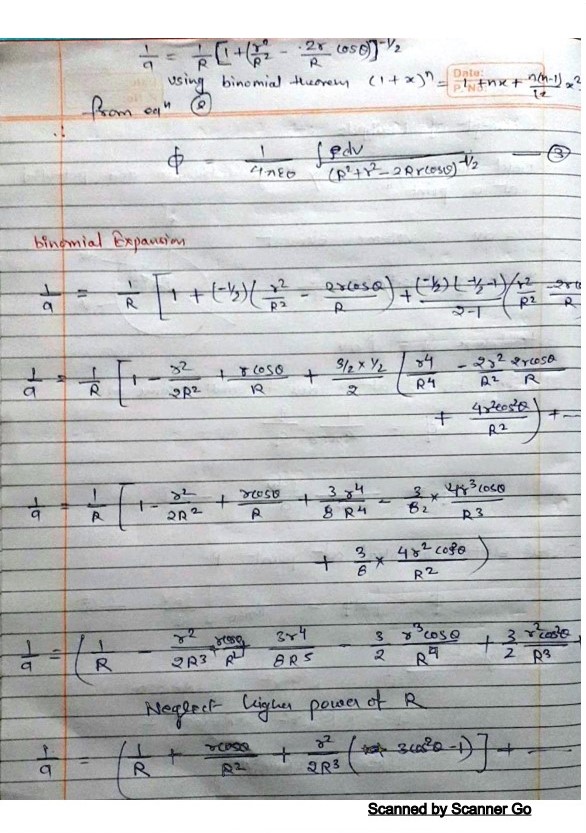 1/a = 1/R [1 + (r²/R² - 2r/R cosθ)]^-1/2
Date:
using binomial theorem (1+x)ⁿ = 1 + nx + n(n-1)/12 x²
P. No
from eqⁿ ②
∴
ϕ = 1/4πε0 ∫ ρdv/(R²+r²-2Rrcosθ)^-1/2 — ③
binomial Expansion
1/a = 1/R [1 + (-1/2)(r²/R² - 2rcosθ/R) + (-1/2)(-1/2-1)/2-1 (r²/R² - 2rc
1/a = 1/R [1 - r²/2R² + rcosθ/R + 3/2 × 1/2 / 2 (r4/R4 - 2r²/R² 2rcosθ/R
+ 4r²cos²θ/R²) + --
1/a = 1/R [1 - r²/2R² + rcosθ/R + 3/8 r4/R4 - 3/82 × 4r³cosθ/R3
+ 3/8 × 4r²cos²θ/R²)
1/a = (1/R - r²/2R3 + rcosθ/R² 3r4/8R5 - 3/2 r³cosθ/R4 + 3/2 r²cos²θ/R3 +
Neglect higher power of R
1/a = (1/R + rcosθ/R² + r²/2R3 (3cos²θ-1)] + —
Scanned by Scanner Go